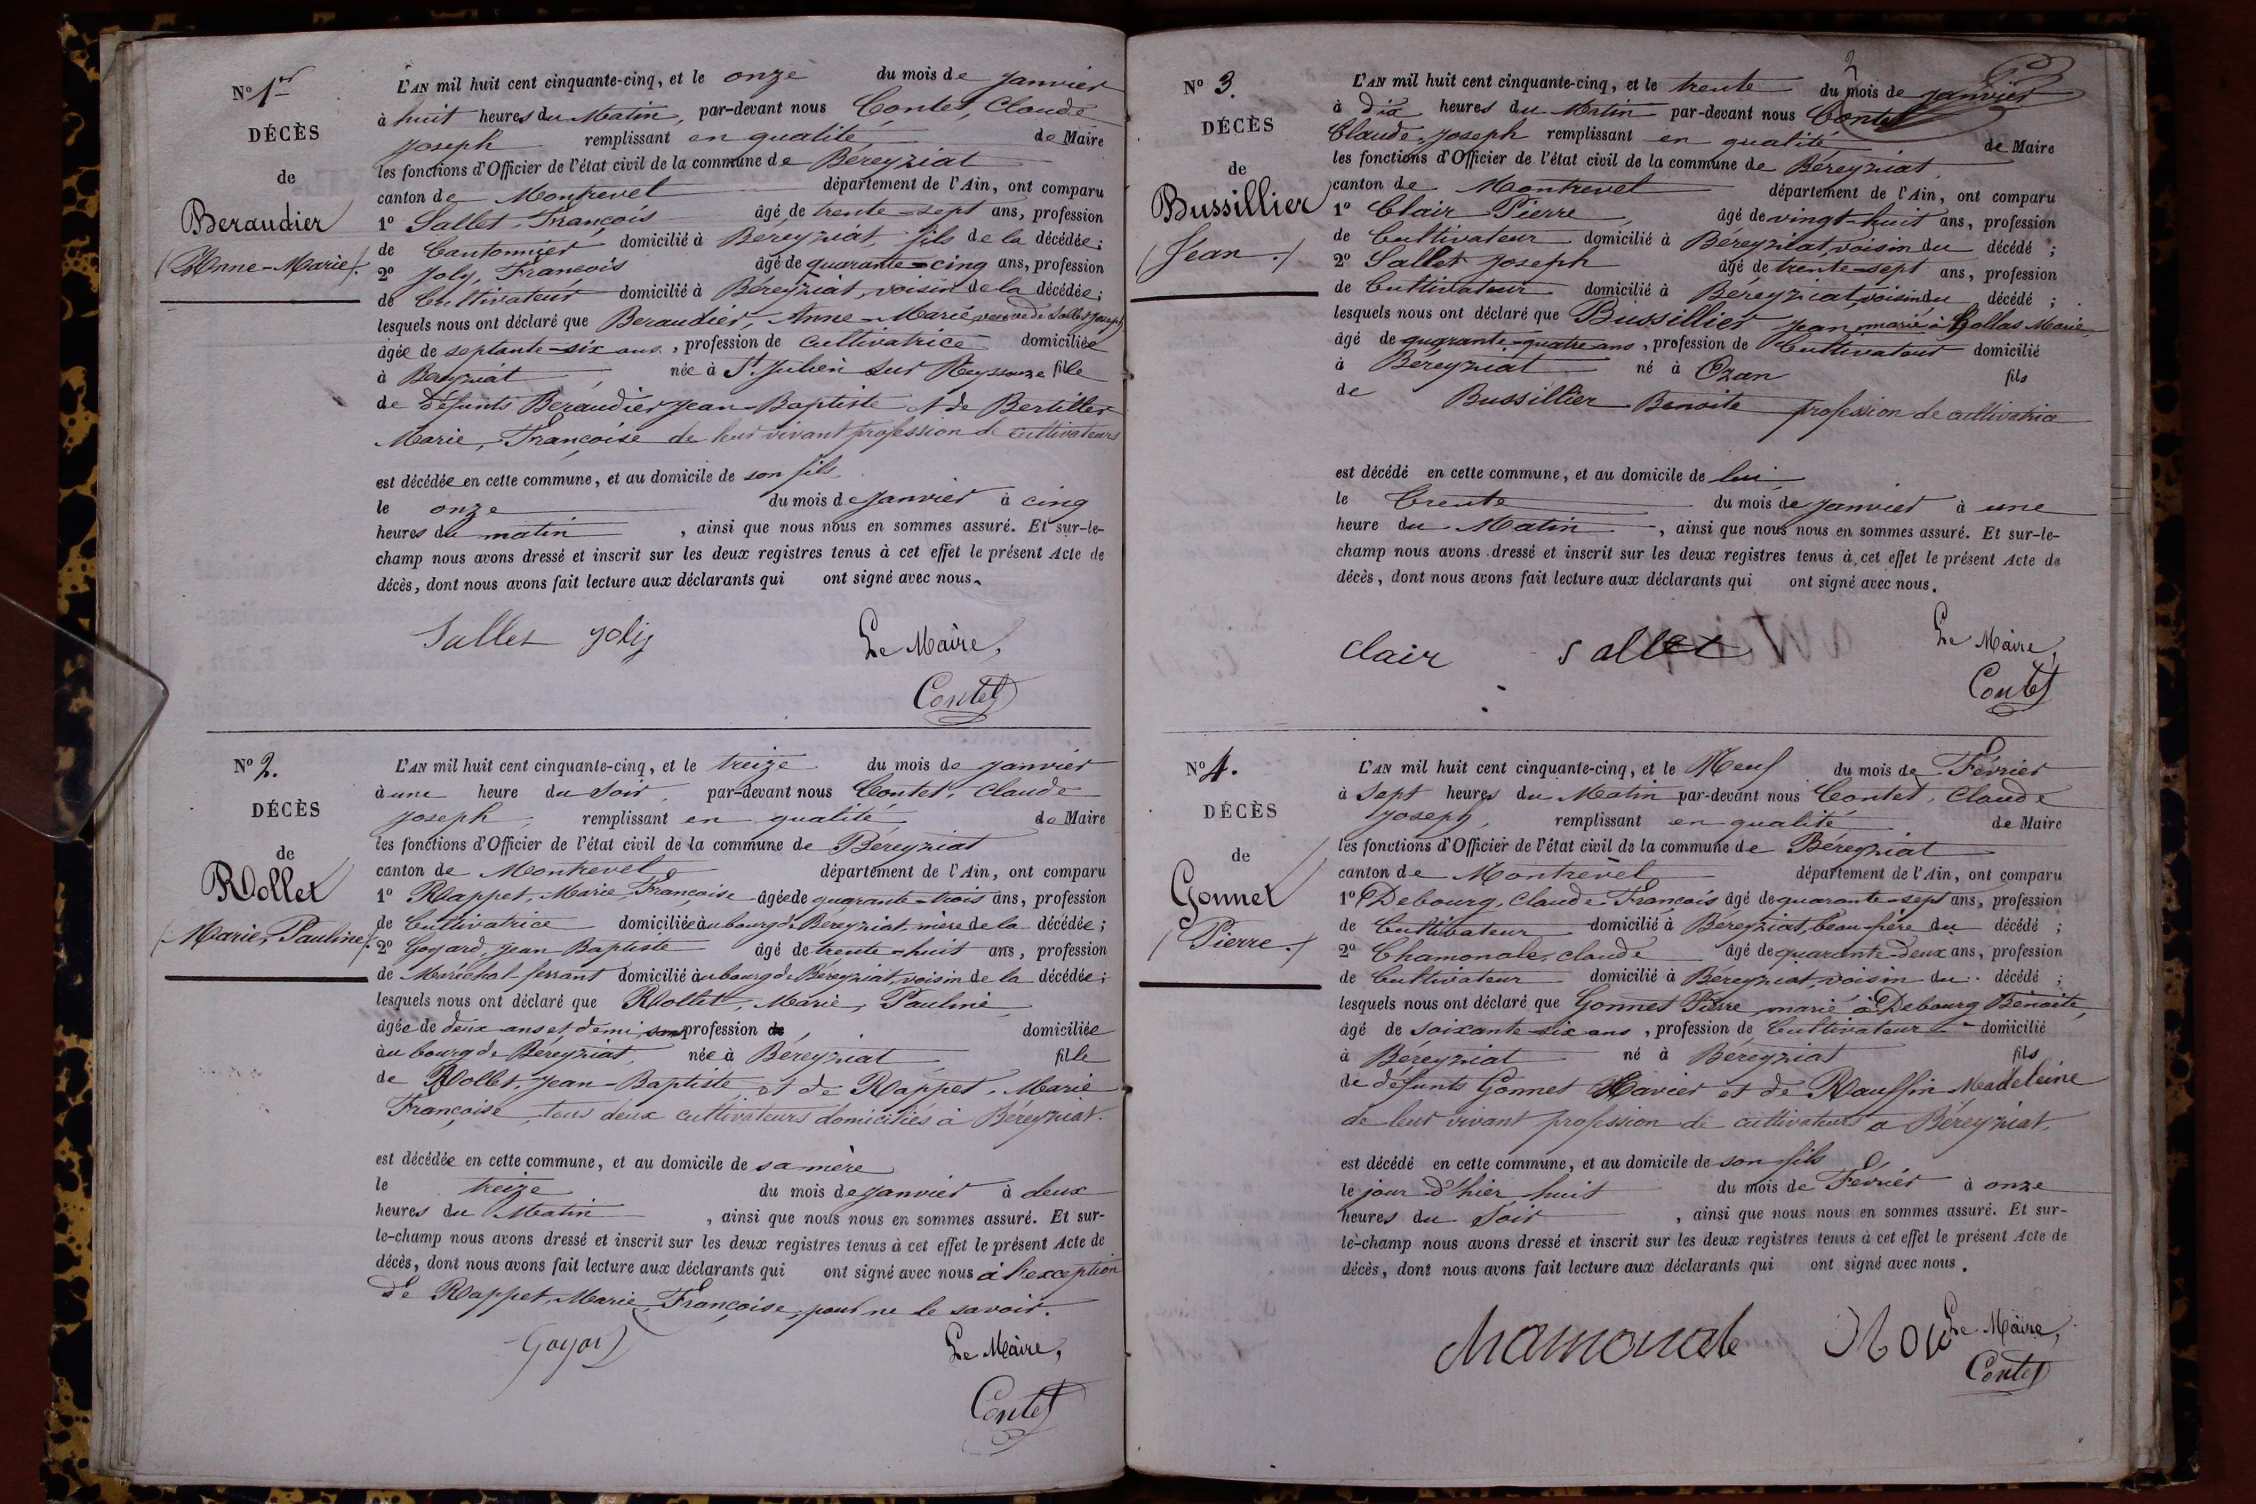 N° 1er
DÉCÈS
de
Beraudier
(Anne-Marie).
L'AN mil huit cent cinquante-cinq, et le onze du mois de Janvier
à huit heures du Matin, par-devant nous Contet, Claude
Joseph remplissant en qualité de Maire
les fonctions d'Officier de l'état civil de la commune de Béreyziat
canton de Montrevel département de l'Ain, ont comparu
1° Sallet, François âgé de trente-sept ans, profession
de Cantonnier domicilié à Béreyziat, fils de la décédée;
2° Joly, François âgé de quarante-cinq ans, profession
de Cultivateur domicilié à Béreyziat, voisin de la décédée;
lesquels nous ont déclaré que Beraudier, Anne-Marie, veuve de Sallet Joseph
âgée de septante-six ans, profession de cultivatrice domiciliée
à Béreyziat née à St. Julien sur Reyssouze fille
de défunts Beraudier Jean-Baptiste & de Bertillet
Marie, Françoise de leur vivant profession de cultivateurs
est décédée en cette commune, et au domicile de son fils
le onze du mois de Janvier à cinq
heures du matin, ainsi que nous nous en sommes assuré. Et sur-le-
champ nous avons dressé et inscrit sur les deux registres tenus à cet effet le présent Acte de
décès, dont nous avons fait lecture aux déclarants qui ont signé avec nous.
Sallet Joly Le Maire,
Contet
N° 2.
DÉCÈS
de
Rollet
(Marie, Pauline).
L'AN mil huit cent cinquante-cinq, et le treize du mois de Janvier
à une heure du Soir, par-devant nous Contet, Claude
Joseph, remplissant en qualité de Maire
les fonctions d'Officier de l'état civil de la commune de Béreyziat
canton de Montrevel département de l'Ain, ont comparu
1° Rappet, Marie, Françoise âgée de quarante-trois ans, profession
de Cultivatrice domiciliée au bourg de Béreyziat, mère de la décédée;
2° Goyard, Jean Baptiste âgé de trente-huit ans, profession
de Maréchal-ferrant domicilié au bourg de Béreyziat, voisin de la décédée;
lesquels nous ont déclaré que Rollet, Marie, Pauline
âgée de deux ans et demi, sans profession de domiciliée
au bourg de Béreyziat, née à Béreyziat fille
de Rollet, Jean-Baptiste et de Rappet, Marie
Françoise, tous deux cultivateurs domiciliés à Béreyziat.
est décédée en cette commune, et au domicile de sa mère
le treize du mois de Janvier à deux
heures du Matin, ainsi que nous nous en sommes assuré. Et sur-
le-champ nous avons dressé et inscrit sur les deux registres tenus à cet effet le présent Acte de
décès, dont nous avons fait lecture aux déclarants qui ont signé avec nous à l'exception
de Rappet, Marie, Françoise, pour ne le savoir.
Goyard Le Maire,
Contet
2
N° 3.
DÉCÈS
de
Bussillier
(Jean.)
L'AN mil huit cent cinquante-cinq, et le trente du mois de Janvier
à dix heures du Matin par-devant nous Contet
Claude-Joseph remplissant en qualité de Maire
les fonctions d'Officier de l'état civil de la commune de Béreyziat
canton de Montrevel département de l'Ain, ont comparu
1° Clair Pierre âgé de vingt-huit ans, profession
de Cultivateur domicilié à Béreyziat, voisin du décédé;
2° Sallet Joseph âgé de trente-sept ans, profession
de Cultivateur domicilié à Béreyziat, voisin du décédé;
lesquels nous ont déclaré que Bussillier Jean, marié à Collas Marie
âgé de quarante-quatre ans, profession de Cultivateur domicilié
à Béreyziat né à Ozan fils
de Bussillier Benoite profession de cultivatrice
est décédé en cette commune, et au domicile de lui
le trente du mois de Janvier à une
heure du Matin, ainsi que nous nous en sommes assuré. Et sur-le-
champ nous avons dressé et inscrit sur les deux registres tenus à cet effet le présent Acte de
décès, dont nous avons fait lecture aux déclarants qui ont signé avec nous.
clair sallet Le Maire,
Contet
N° 4.
DÉCÈS
de
Gonnet
(Pierre.)
L'AN mil huit cent cinquante-cinq, et le Neuf du mois de Février
à sept heures du Matin par-devant nous Contet, Claude
Joseph, remplissant en qualité de Maire
les fonctions d'Officier de l'état civil de la commune de Béreyziat
canton de Montrevel département de l'Ain, ont comparu
1° Debourg, Claude-François âgé de quarante-sept ans, profession
de Cultivateur domicilié à Béreyziat, beau frère du décédé;
2° Chamonale, claude âgé de quarante-deux ans, profession
de Cultivateur domicilié à Béreyziat, voisin du décédé;
lesquels nous ont déclaré que Gonnet Pierre, marié à Debourg Benoite,
âgé de soixante-six ans, profession de Cultivateur domicilié
à Béreyziat né à Béreyziat fils
de défunts Gonnet Xavier et de Rauffin Madeleine
de leur vivant profession de cultivateurs à Béreyziat.
est décédé en cette commune, et au domicile de son fils
le jour d'hier huit du mois de Février à onze
heures du Soir, ainsi que nous nous en sommes assuré. Et sur-
le-champ nous avons dressé et inscrit sur les deux registres tenus à cet effet le présent Acte de
décès, dont nous avons fait lecture aux déclarants qui ont signé avec nous.
chamonale Le Maire,
Contet